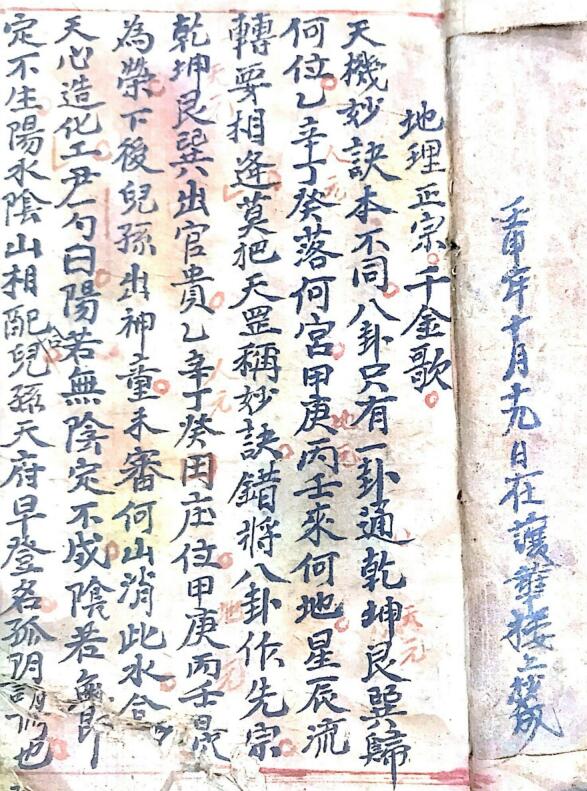 壬申年十月十九日在護華楼上
地理正宗。千金歌。
天機妙訣本不同。八卦只有一卦通乾坤艮巽歸
何位。乙辛丁癸落何宮。甲庚丙壬來何地。星辰流
轉要相逢。莫把天罡稱妙訣。錯將八卦作先宗。
乾坤艮巽出官貴。乙辛丁癸田庄位。甲庚丙壬最
為榮。下後兒孫出神童。未審何山消此水。合
天心造化工。尹勺曰陽若無陰定不成。陰若無陽
定不生。陽水陰山相配合兒孫天府早登名。孤阴也
天元
人元
地元
天元
人元
地元